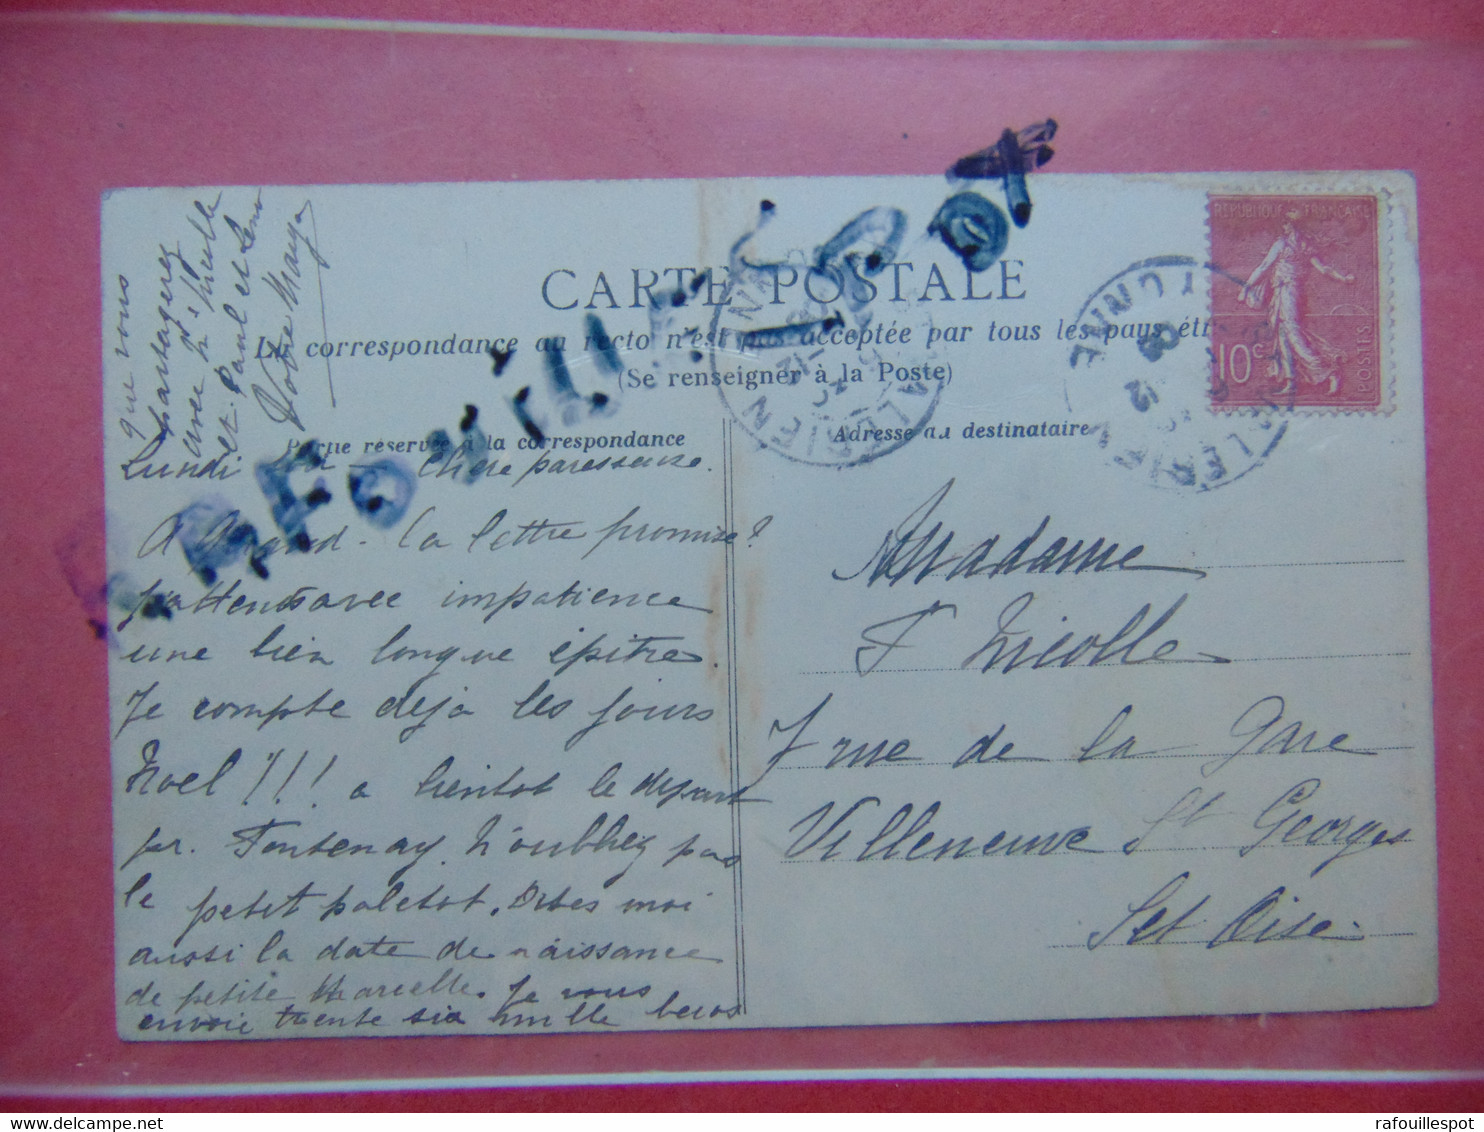 CARTE POSTALE
La correspondance au recto n'est pas acceptée par tous les pays
(Se renseigner à la Poste)
Partie réservée à la correspondance
Adresse au destinataire
RÉPUBLIQUE FRANÇAISE
10c
POSTES
Lundi Chère paresseuse.
A quand la lettre promise?
J'attends avec impatience
une bien longue épitre.
Je compte deja les jours
Noel!!! a bientot le depart
pr. Fontenay. N'oubliez pas
le petit paletot. Dites moi
aussi la date de naissance
de petite Marcelle. Je vous
envoie trente six mille becos
que vous
partagerez
avec
et Paul et
Votre Maya
Madame
F Nicolle
7 rue de la Gare
Villeneuve St Georges
Set Oise
rafouillespot